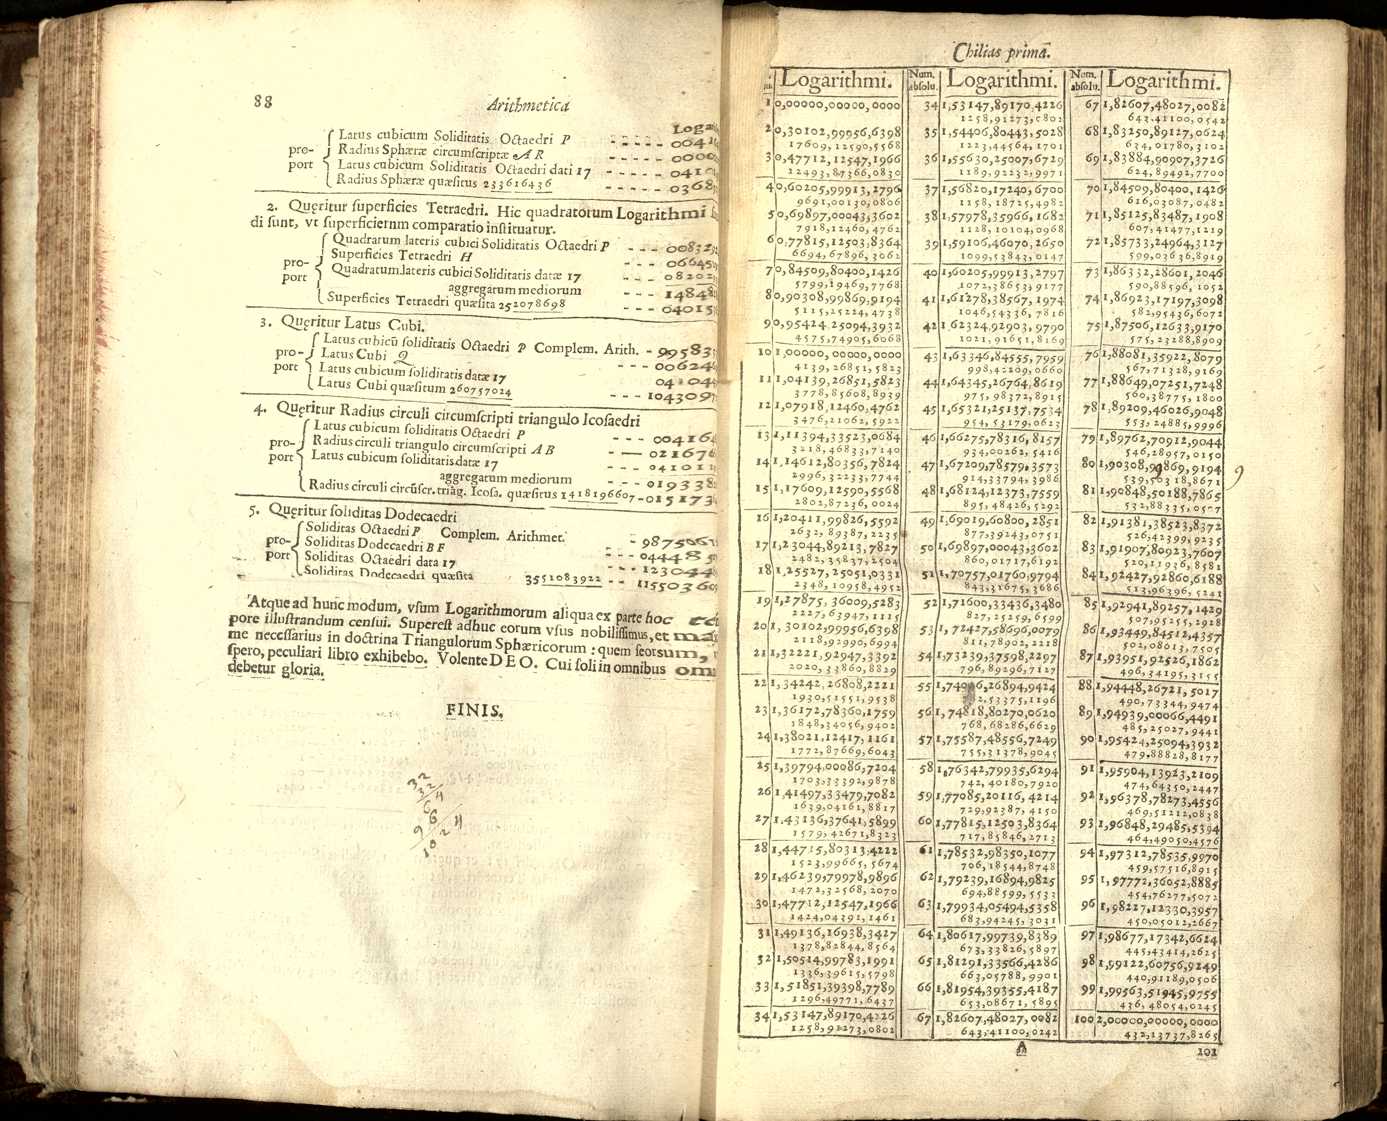 88 Arithmetica
Latus cubicum Soliditatis Octaedri P
Radius Sphæræ circumscriptæ A R
Latus cubicum Soliditatis Octaedri dati 17
Radius Sphæræ quæsitus 233616436
pro-
port
2. Queritur superficies Tetraedri. Hic quadratorum Logarithmi
di sunt, vt superficierum comparatio instituatur.
Quadratum lateris cubici Soliditatis Octaedri P
Superficies Tetraedri H
Quadratum lateris cubici Soliditatis datæ 17
aggregatum mediorum
Superficies Tetraedri quæsita 252078698
pro-
port
3. Queritur Latus Cubi.
Latus cubicū soliditatis Octaedri P Complem. Arith. - 99583
Latus Cubi Q - - - 00624
Latus cubicum soliditatis datæ 17
Latus Cubi quæsitum 260757024
pro-
port
4. Queritur Radius circuli circumscripti triangulo Icosaedri
Latus cubicum soliditatis Octaedri P - - - 004164
Radius circuli triangulo circumscripti A B
Latus cubicum soliditatis datæ 17
aggregatum mediorum - - - 019338
Radius circuli circūscr. triāg. Icosa. quæsitus 1418196607 - 015173
pro-
port
5. Queritur soliditas Dodecaedri
Soliditas Octaedri P Complem. Arithmet.
Soliditas Dodecaedri B F
Soliditas Octaedri data 17
Soliditas Dodecaedri quæsita 3551083922
pro-
port
Atque ad hunc modum, vsum Logarithmorum aliqua ex parte hoc
pore illustrandum censui. Superest adhuc eorum vsus nobilissimus, et
me necessarius in doctrina Triangulorum Sphæricorum : quem seorsum,
spero, peculiari libro exhibebo. Volente DEO. Cui soli in omnibus
debetur gloria.
FINIS.
Chilias primā.
Logarithmi.
1 0,00000,00000,0000
2 0,30102,99956,6398
17609,12590,5568
3 0,47712,12547,1966
12493,87366,0830
4 0,60205,99913,2796
9691,00130,0806
5 0,69897,00043,3602
7918,12460,4762
6 0,77815,12503,8364
6694,67896,3062
7 0,84509,80400,1426
5799,19469,7768
8 0,90308,99869,9194
5115,25224,4738
9 0,95424,25094,3932
4575,74905,6068
10 1,00000,00000,0000
4139,26851,5823
11 1,04139,26851,5823
3778,85608,8939
12 1,07918,12460,4762
3476,21062,5922
13 1,11394,33523,0684
3218,46833,7140
14 1,14612,80356,7824
2996,32233,7744
15 1,17609,12590,5568
2802,87236,0024
16 1,20411,99826,5592
2632,89387,2235
17 1,23044,89213,7827
2482,35837,2504
18 1,25527,25051,0331
2348,10958,4952
19 1,27875,36009,5283
2227,63947,1115
20 1,30102,99956,6398
2118,92990,6994
21 1,32221,92947,3392
2020,33860,8829
22 1,34242,26808,2221
1930,51551,9538
23 1,36172,78360,1759
1848,34056,9402
24 1,38021,12417,1161
1772,87669,6043
25 1,39794,00086,7204
1703,33392,9878
26 1,41497,33479,7082
1639,04161,8817
27 1,43136,37641,5899
1579,42671,8323
28 1,44715,80313,4222
1523,99665,5674
29 1,46239,79978,9896
1472,32568,2070
30 1,47712,12547,1966
1424,04391,1461
31 1,49136,16938,3427
1378,82844,8564
32 1,50514,99783,1991
1336,39615,5798
33 1,51851,39398,7789
1296,49771,6437
34 1,53147,89170,4226
1258,91273,0802
Num. absolu. Logarithmi.
34 1,53147,89170,4226
1258,91273,0802
35 1,54406,80443,5028
1223,44564,1701
36 1,55630,25007,6729
1189,92232,9971
37 1,56820,17240,6700
1158,18725,4982
38 1,57978,35966,1682
1128,10104,0968
39 1,59106,46070,2650
1099,53843,0147
40 1,60205,99913,2797
1072,38653,9177
41 1,61278,38567,1974
1046,54336,7816
42 1,62324,92903,9790
1021,91651,8169
43 1,63346,84555,7959
998,42209,0660
44 1,64345,26764,8619
975,98372,8915
45 1,65321,25137,7534
954,53179,0623
46 1,66275,78316,8157
934,00262,5416
47 1,67209,78579,3573
914,33794,3986
48 1,68124,12373,7559
895,48426,5292
49 1,69019,60800,2851
877,39243,0751
50 1,69897,00043,3602
860,01717,6192
51 1,70757,01760,9794
843,31675,3686
52 1,71600,33436,3480
827,25259,6599
53 1,72427,58696,0079
811,78902,2218
54 1,73239,37598,2297
796,89296,7127
55
56 1,74818,80270,0620
768,68286,6629
57 1,75587,48556,7249
755,31378,9045
58 1,76342,79935,6294
742,40180,7920
59 1,77085,20116,4214
729,92387,4150
60 1,77815,12503,8364
717,85846,2713
61 1,78532,98350,1077
706,18544,8748
62 1,79239,16894,9825
694,88599,5533
63 1,79934,05494,5358
683,94245,3031
64 1,80617,99739,8389
673,33826,5897
65 1,81291,33566,4286
663,05788,9901
66 1,81954,39355,4187
653,08671,5895
67 1,82607,48027,0082
643,41100,0242
Num. absolu. Logarithmi.
67 1,82607,48027,0082
643,41100,0542
68 1,83250,89127,0624
634,01780,3102
69 1,83884,90907,3726
624,89492,7700
70 1,84509,80400,1426
616,03087,0482
71 1,85125,83487,1908
607,41477,1219
72 1,85733,24964,3127
599,03636,8919
73 1,86332,28601,2046
590,88596,1052
74 1,86923,17197,3098
582,95436,6072
75 1,87506,12633,9170
575,23288,8909
76 1,88081,35922,8079
567,71328,9169
77 1,88649,07251,7248
560,38775,1800
78 1,89209,46026,9048
553,24885,9996
79 1,89762,70912,9044
546,28957,0150
80 1,90308,99869,9194 9
539,50318,8671
81 1,90848,50188,7865
532,88335,0507
82 1,91381,38523,8372
526,42399,9235
83 1,91907,80923,7607
520,11936,8581
84 1,92427,92860,6188
513,96396,5241
85 1,92941,89257,1429
507,95255,2928
86 1,93449,84512,4357
502,08013,7505
87 1,93951,92526,1862
496,34195,3155
88 1,94448,26721,5017
490,73344,9474
89 1,94939,00066,4491
485,25027,9441
90 1,95424,25094,3932
479,88828,8177
91 1,95904,13923,2109
474,64350,2447
92 1,96378,78273,4556
469,51212,0838
93 1,96848,29485,5394
464,49050,4576
94 1,97312,78535,9970
459,57516,8915
95 1,97772,36052,8885
454,76277,5072
96 1,98227,12330,3957
450,05012,2667
97 1,98677,17342,6624
445,43414,2625
98 1,99122,60756,9249
440,91189,0506
99 1,99563,51945,9755
436,48054,0245
100 2,00000,00000,0000
432,13737,8265
A 101